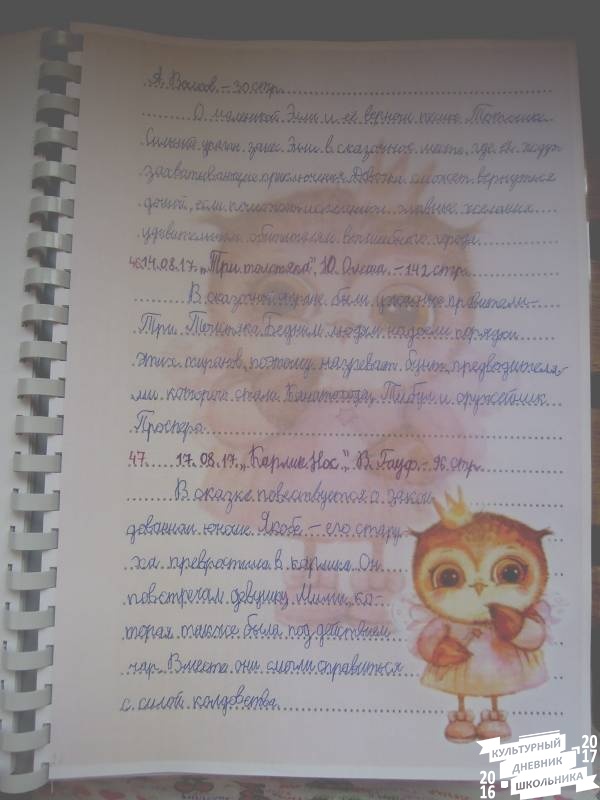 А. Волков. – 30 стр.
О маленькой Элли и её верном пёсике Тотошке.
Сильный ураган занёс Элли в сказочное место, где её ждут
захватывающие приключения. Девочка сможет вернуться
домой, если поможет исполнить главные желания
удивительным обитателям волшебного города.
46 14.08.17. „Три толстяка", Ю. Олеша. – 142 стр.
В сказочной стране были ужасные правители –
Три Толстяка. Бедным людям надоели порядки
этих тиранов, поэтому назревает бунт, предводителя-
ми которого стали Канатоходец Тибул и оружейник
Просперо.
47. 17.08.17. „Карлик Нос", В. Гауф. – 96 стр.
В сказке повествуется о закол
дованном юноше Якобе – его стару
ха превратила в карлика. Он
повстречал девушку Мими, ко-
торая также была под действием
чар. Вместе они смогли справиться
с силой колдовства.
КУЛЬТУРНЫЙ
ДНЕВНИК
ШКОЛЬНИКА
2016
2017